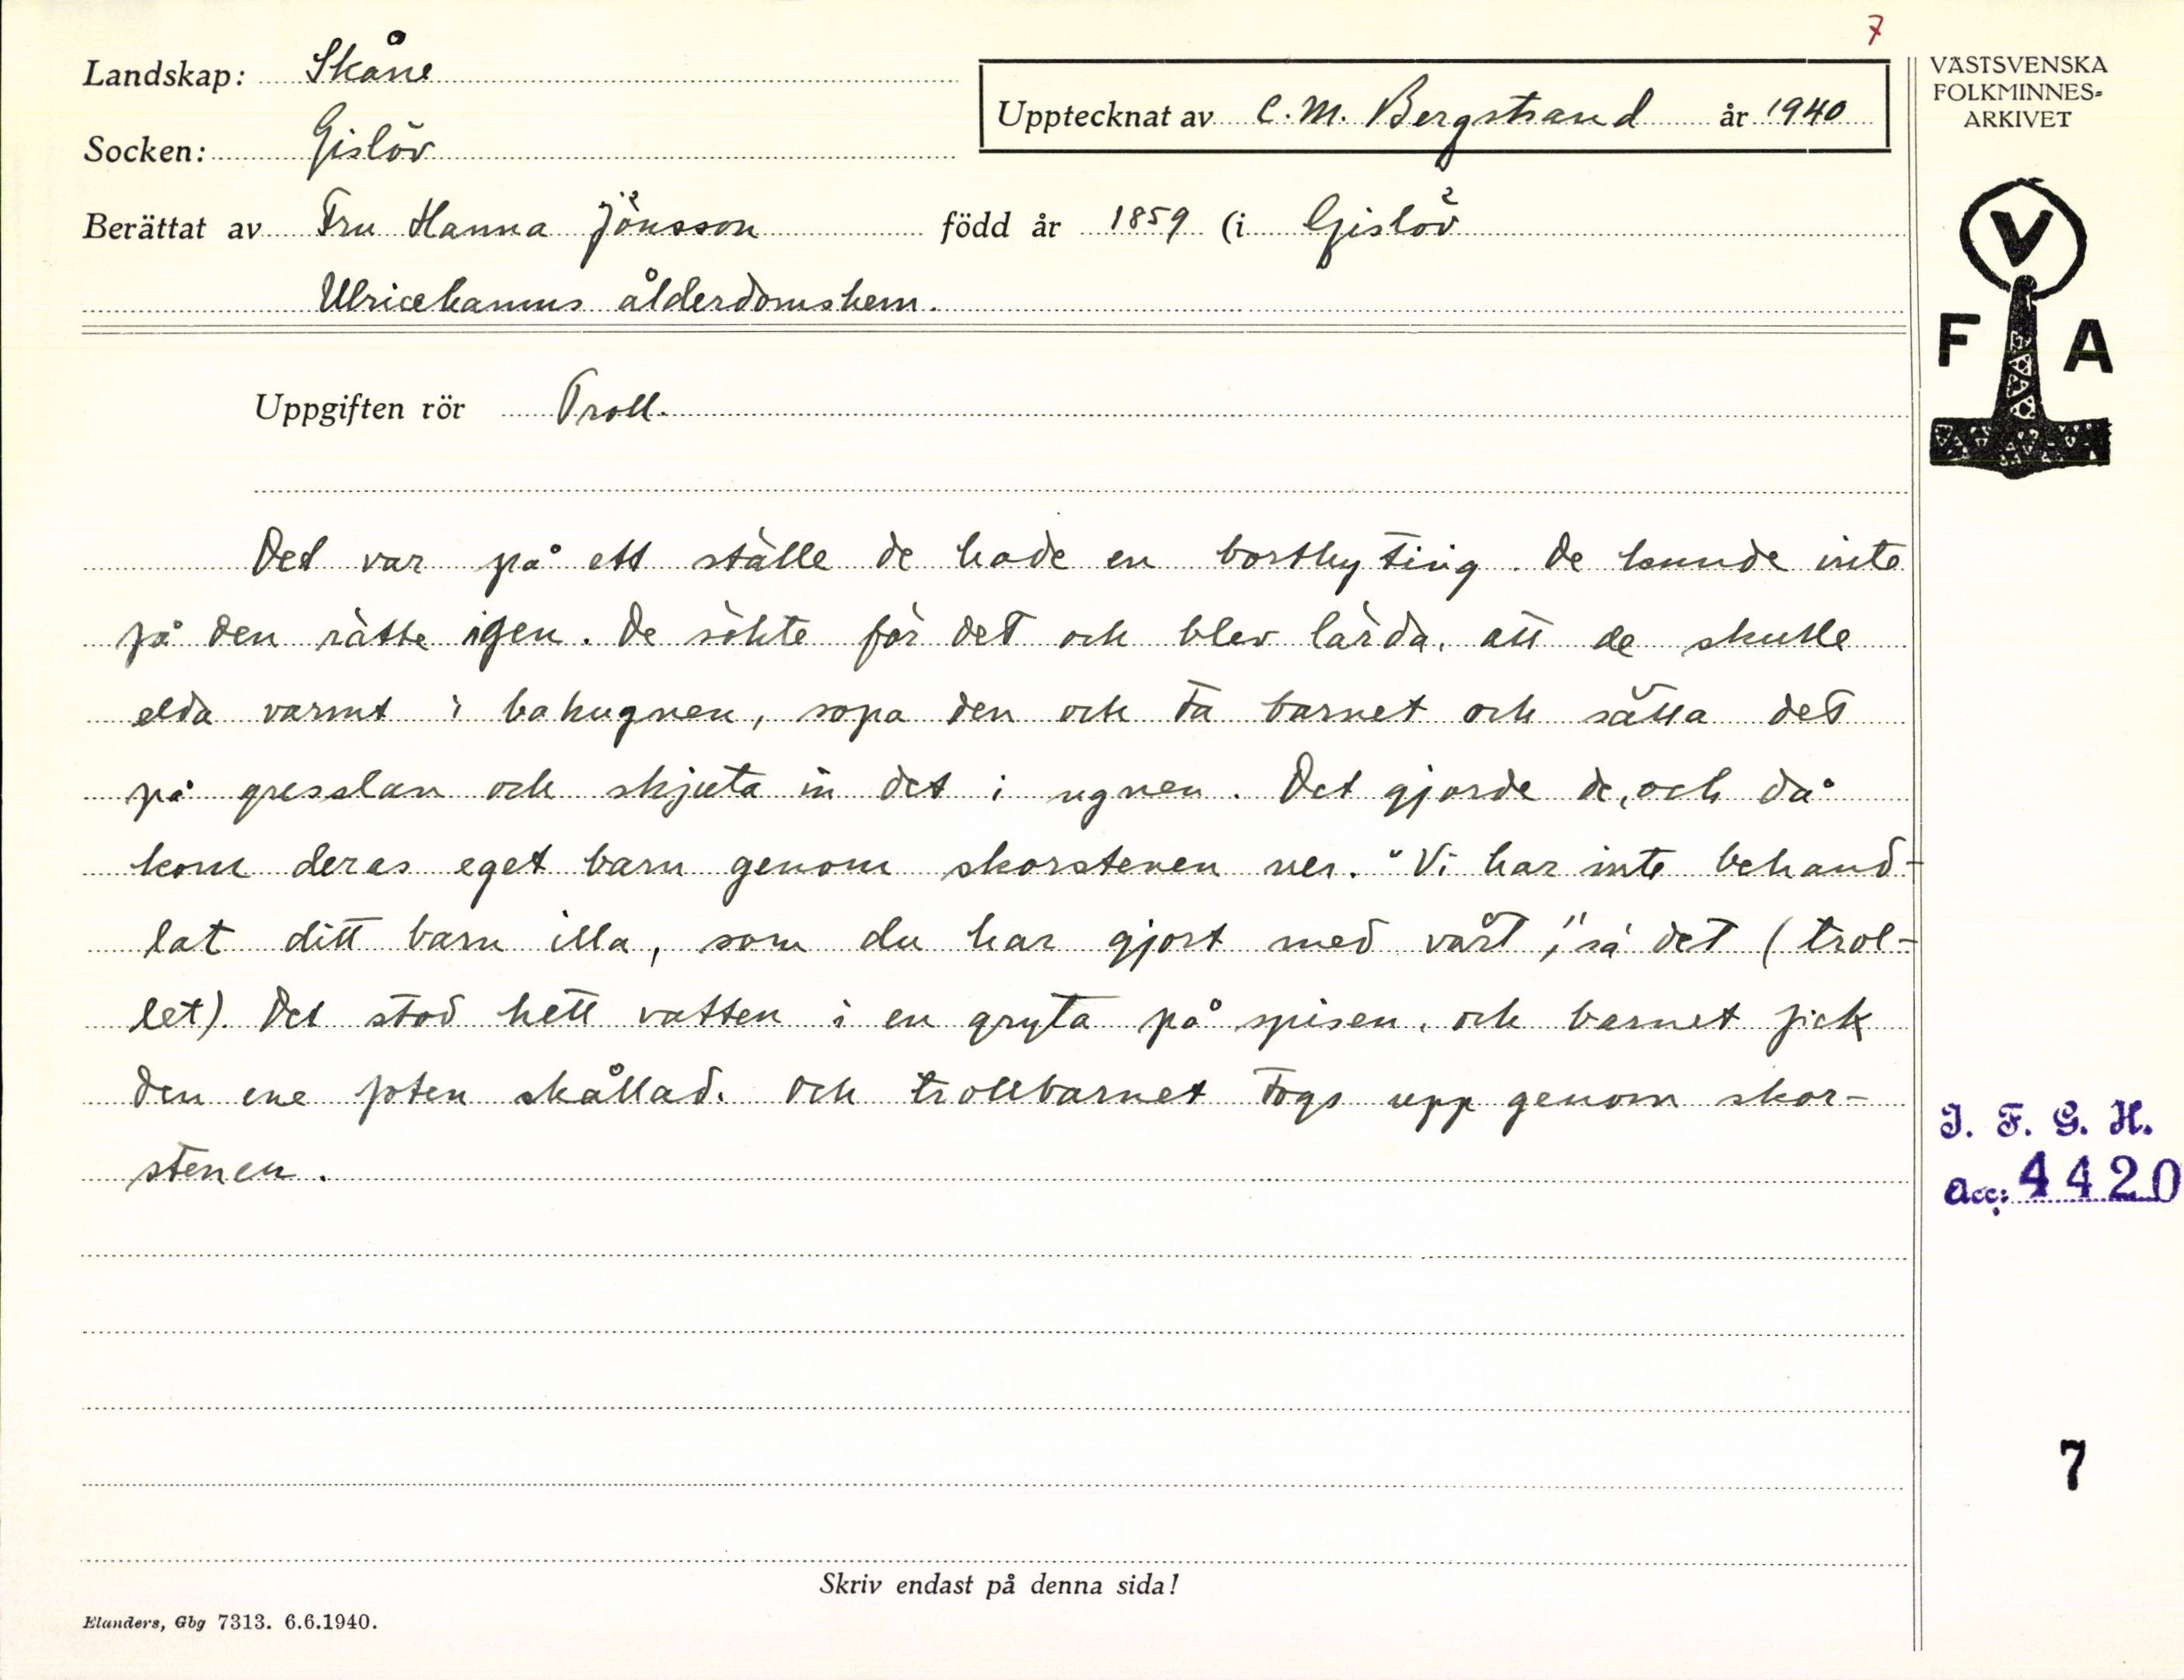 7
Landskap: Skåne
Upptecknat av C. M. Bergstrand år 1940
Socken: Gislöv
Berättat av Fru Hanna Jönsson född år 1859 (i Gislöv
Ulricehamns ålderdomshem.
Uppgiften rör Troll.
Det var på ett ställe de hade en bortbyting. De kunde inte
få den rätte igen. De sökte för det och blev lärda, att de skulle
elda varmt i bakugnen, sopa den och ta barnet och sätta det
på gresslan och skjuta in det i ugnen. Det gjorde de, och då
kom deras eget barn genom skorstenen ner. "Vi har inte behand-
lat ditt barn illa, som du har gjort med vårt," sa det (trol-
let). Det stod hett vatten i en gryta på spisen, och barnet fick
den ene foten skållad. Och trollbarnet togs upp genom skor-
stenen.
Skriv endast på denna sida!
Elanders, Gbg 7313. 6.6.1940.
VÄSTSVENSKA
FOLKMINNES-
ARKIVET
V
F A
I. F. G. H.
Acc: 4420
7